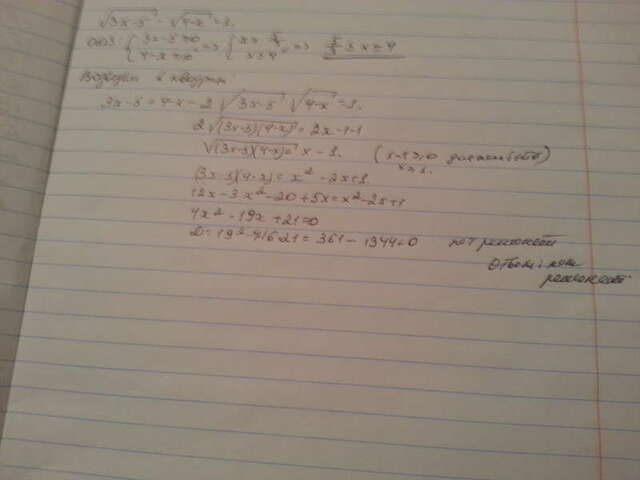 √3x-5 - √4-x = 1.
ОДЗ: { 3x-5≥0 => { x≥ 5/3 => 5/3 ≤ x ≤ 4
4-x≥0 x≤4
Возведем в квадрат
3x-5+4-x-2√3x-5 √4-x = 1.
2√(3x-5)(4-x) = 2x-1-1
√(3x-5)(4-x) = x-1. (x-1≥0 должно быть)
x≥1.
(3x-5)(4-x) = x²-2x+1.
12x-3x²-20+5x=x²-2x+1
4x²-19x+21=0
D=19²-4·16·21=361-1344<0 нет решений
Ответ: нет
решений.